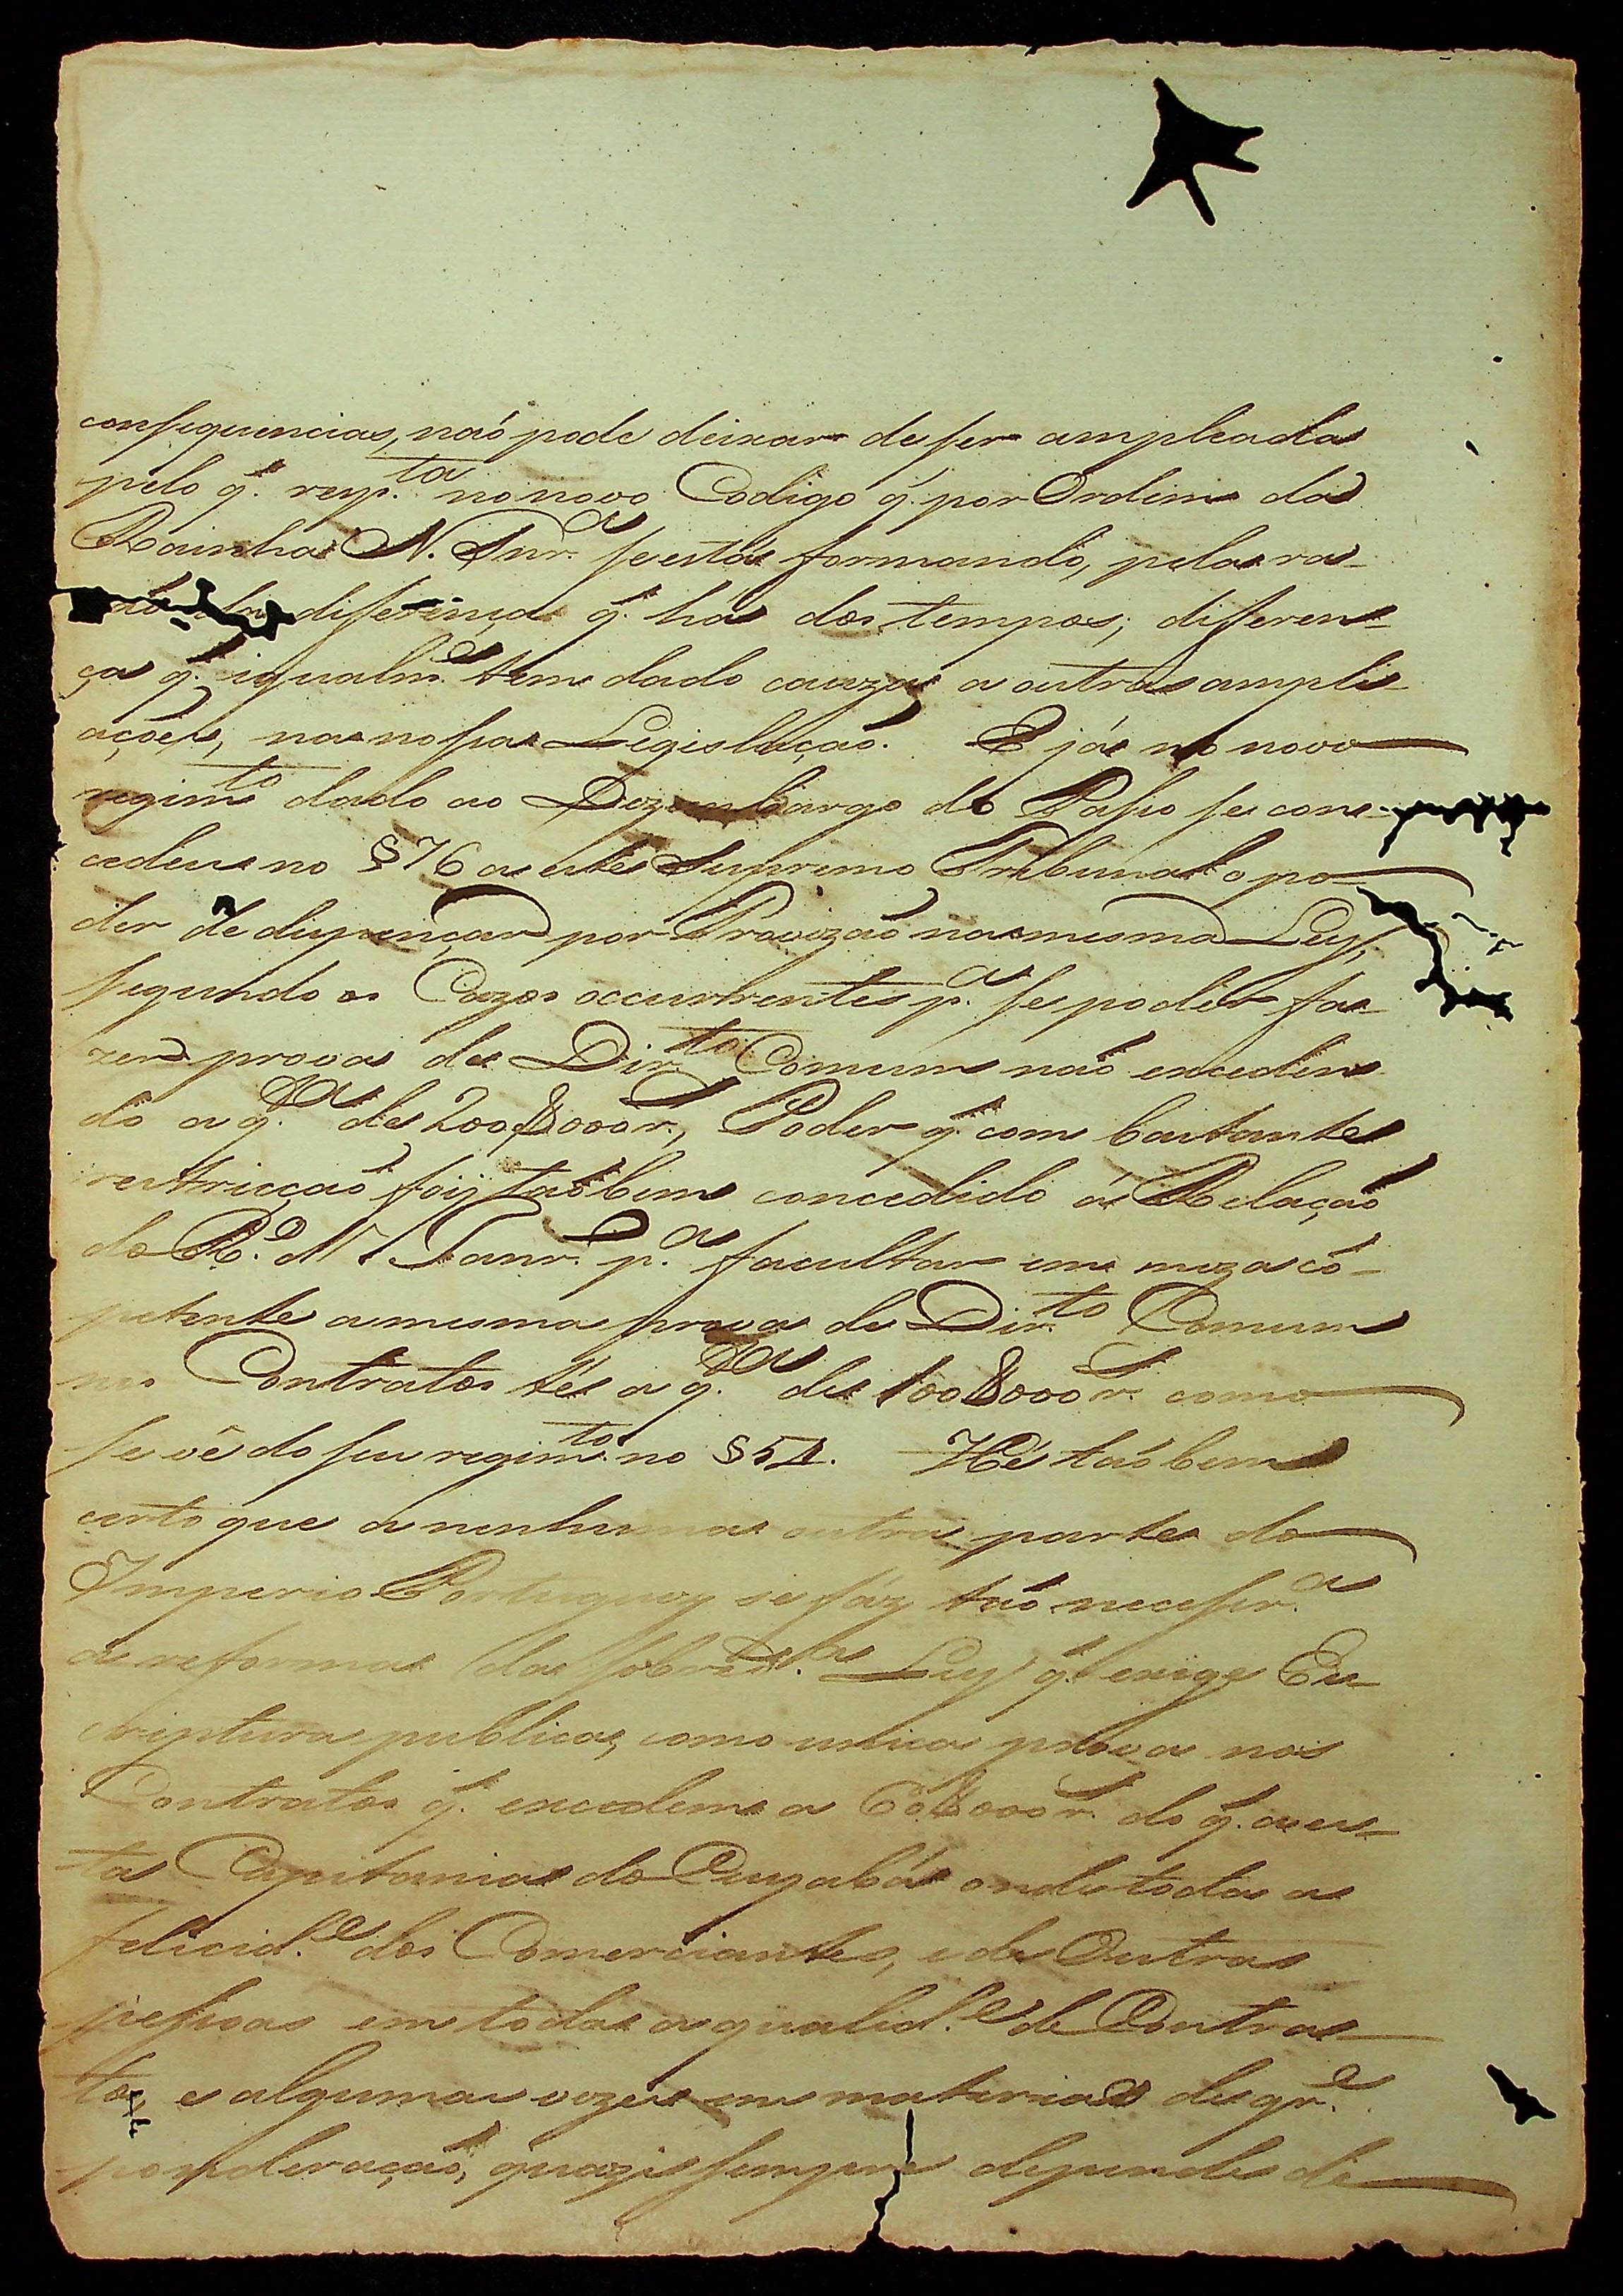 consequencias, naó pode deixar de ser ampleada
pelo q̃. resp.ta no novo Codigo q̃. por Ordem da
Rainha N. Snr.a se está formando, pela ra-
diferença q̃. há dos tempos; diferen-
ça q̃. igualm.e tem dado cauza a outras ampli-
açoẽs, na nossa Legislaçaó. E já no novo
regim.to dado ao Dezembargo do Passo se con-
cedeu no § 76 a este Supremo Tribunal o po-
der de dispençar por Provizaó na mesma Ley,
segundo os Cazos occurrentes p.a se poder fa-
zer prova de Dir.to Comum naó exceden-
do a q.ta de 200$000 r.s, Poder q̃. com bastante
restricçaó foi taóbem concedido á Relaçaó
do R.o de Janr.o p.a facultar em meza cõ-
petente a mesma prova de Dir.to Comum
nos Contratos té a q.ta de 100$000 r.s como
se vê do seu regim.to no § 54. Hé taóbem
certo que a nenhuma outra parte do
Imperio Portuguez se fáz taó necessr.a
a reforma da sobred.a Ley q̃. exige Es-
criptura publica, como unica prova nos
Contratos q̃. excedem a 60$000 r.s do q̃. a es-
ta Capitania do Cuyabá onde toda a
felicid.e dos Comerciantes, e de Outras
pessoas em toda a qualid.e de Contra-
tos, e algumas vezes em materias de gr.e
ponderaçaó, quazi sempre depende de